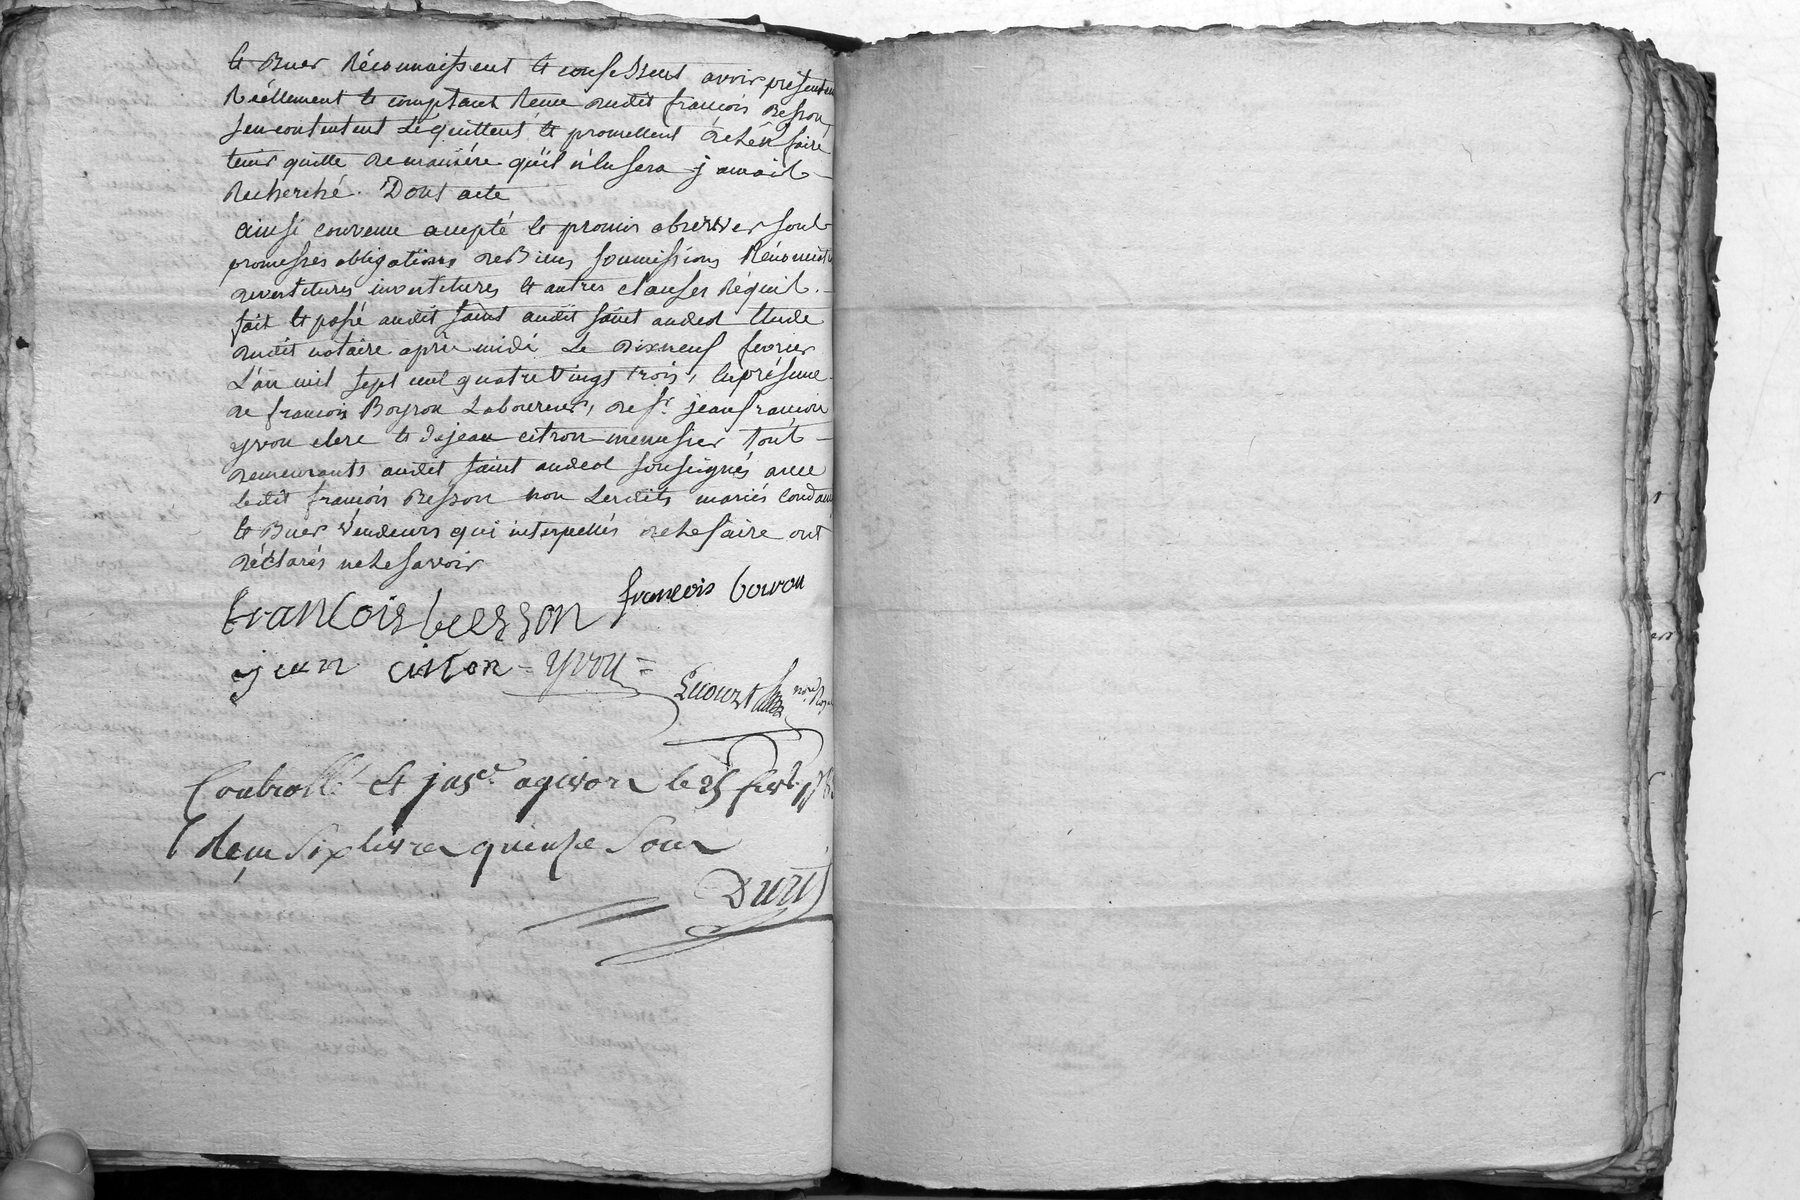 et Buer Réconnaissent et confessent avoir présentem
Réellement et comptant Reçue dudit françois Besson
s'en contentent Le quittent et promettent de L'en faire
tenir quitte de maniére qu'il n'en sera jamais
Recherché. Dont acte
ainsi convenu accepté et promis observer sous
promesses obligations de Biens soumissions Rénonciat
devestitures investitures et autres clauses Réquis.
fait et passé audit saint audit saint andeol Etude
dudit notaire après midi Le dixneuf fevrier
L'an mil sept cent quatre vingt trois, En présence
de francois Boyron Laboureur, de sr. jean françois
yvon clerc et de jean citron menusier tous
demeurants audit saint andeol soussignés avec
Ledit françois Besson non Lesdits mariés
et Buer Vendeurs qui interpellés de Le faire ont
déclarés ne Le savoir
francois besson françois boiron
jean citron = yvon =
Controllé et insé. a givors le 25 fevr. 178
Reçu six livres quinse sous